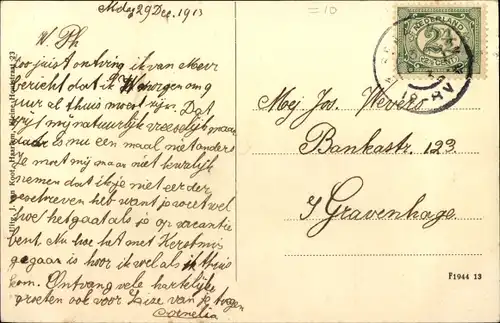 Mdag 29 Dec. 1913
= 10
W. Ph
Zoo juist ontving ik van Meer
bericht dat ik morgen om 9
uur al thuis moet zijn. Dat
spijt mij natuurlijk vreeselijk maar
daar is nu een maal niet anders
Je moet mij maar niet kwalijk
nemen dat ik je niet eerder
geschreven heb want je weet wel
hoe het gaat als je op vacantie
bent. Nu hoe het met Kerstmis
gegaan is hoor ik wel als ik thuis
kom. Ontvang vele hartelijke
groeten ook voor Lize van je
Cornelia
NEDERLAND
2½
CENT
Mej Jos. Wevero
Bankastr. 123
s Gravenhage
F1944 13